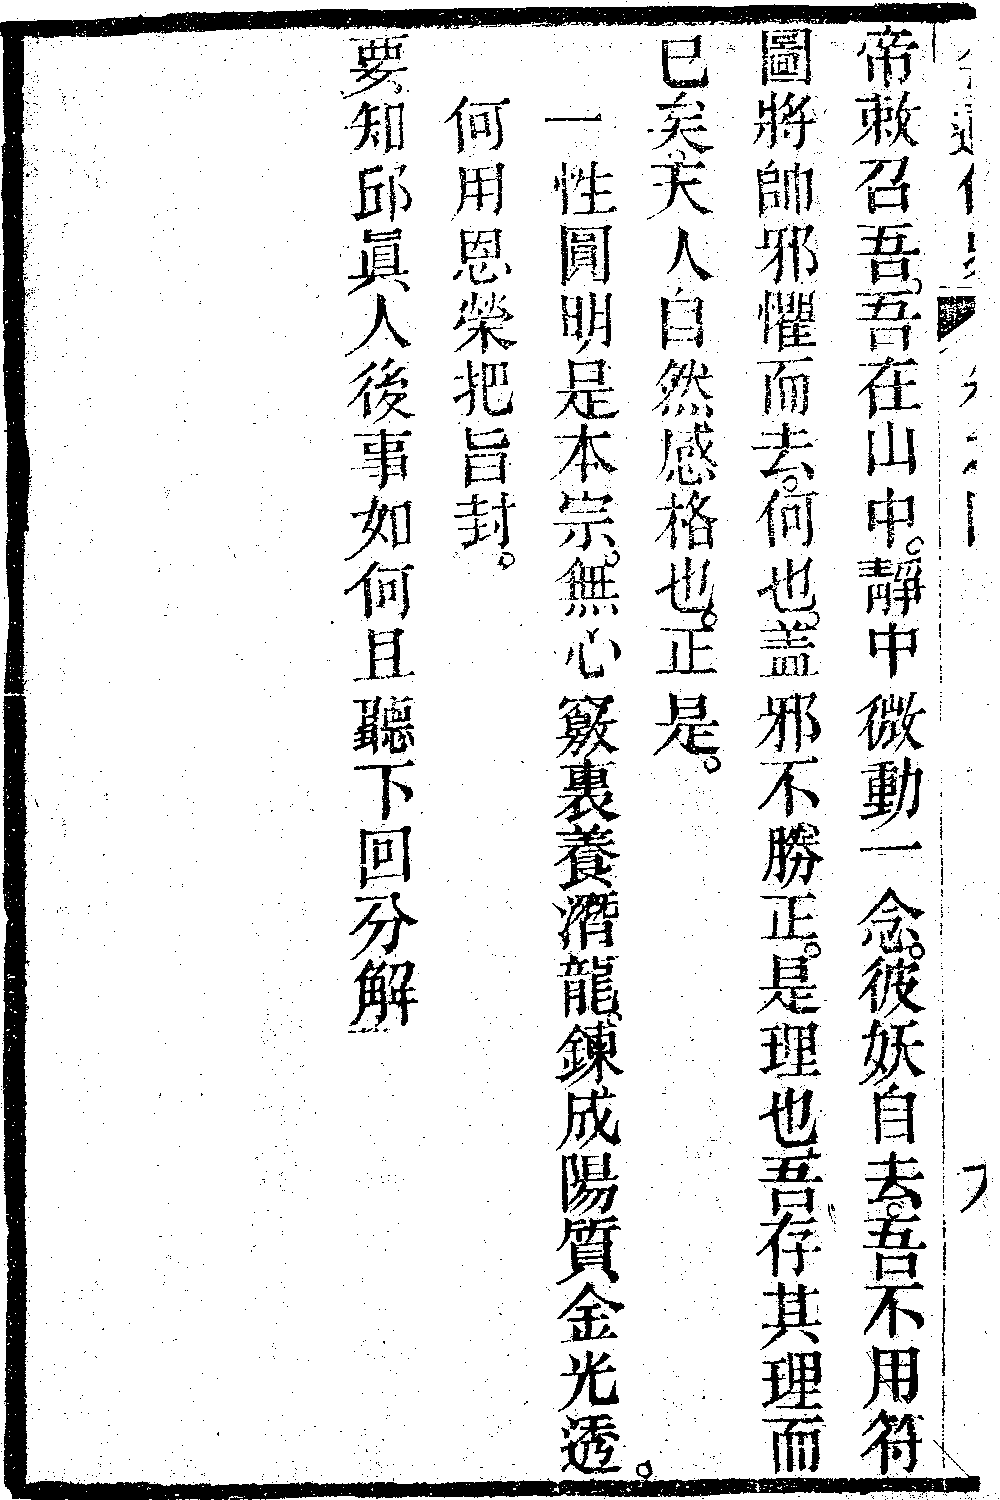 帝敕召吾。吾在山中。靜中微動一念。彼妖自去。吾不用符
圖將帥邪懼而去。何也。盖邪不勝正。是理也吾存其理而
已矣。天人自然感格也。正是。
一性圓明是本宗。無心竅裏養潛龍。鍊成陽質金光透。
何用恩榮把旨封。
要知邱眞人後事如何且聽下回分解